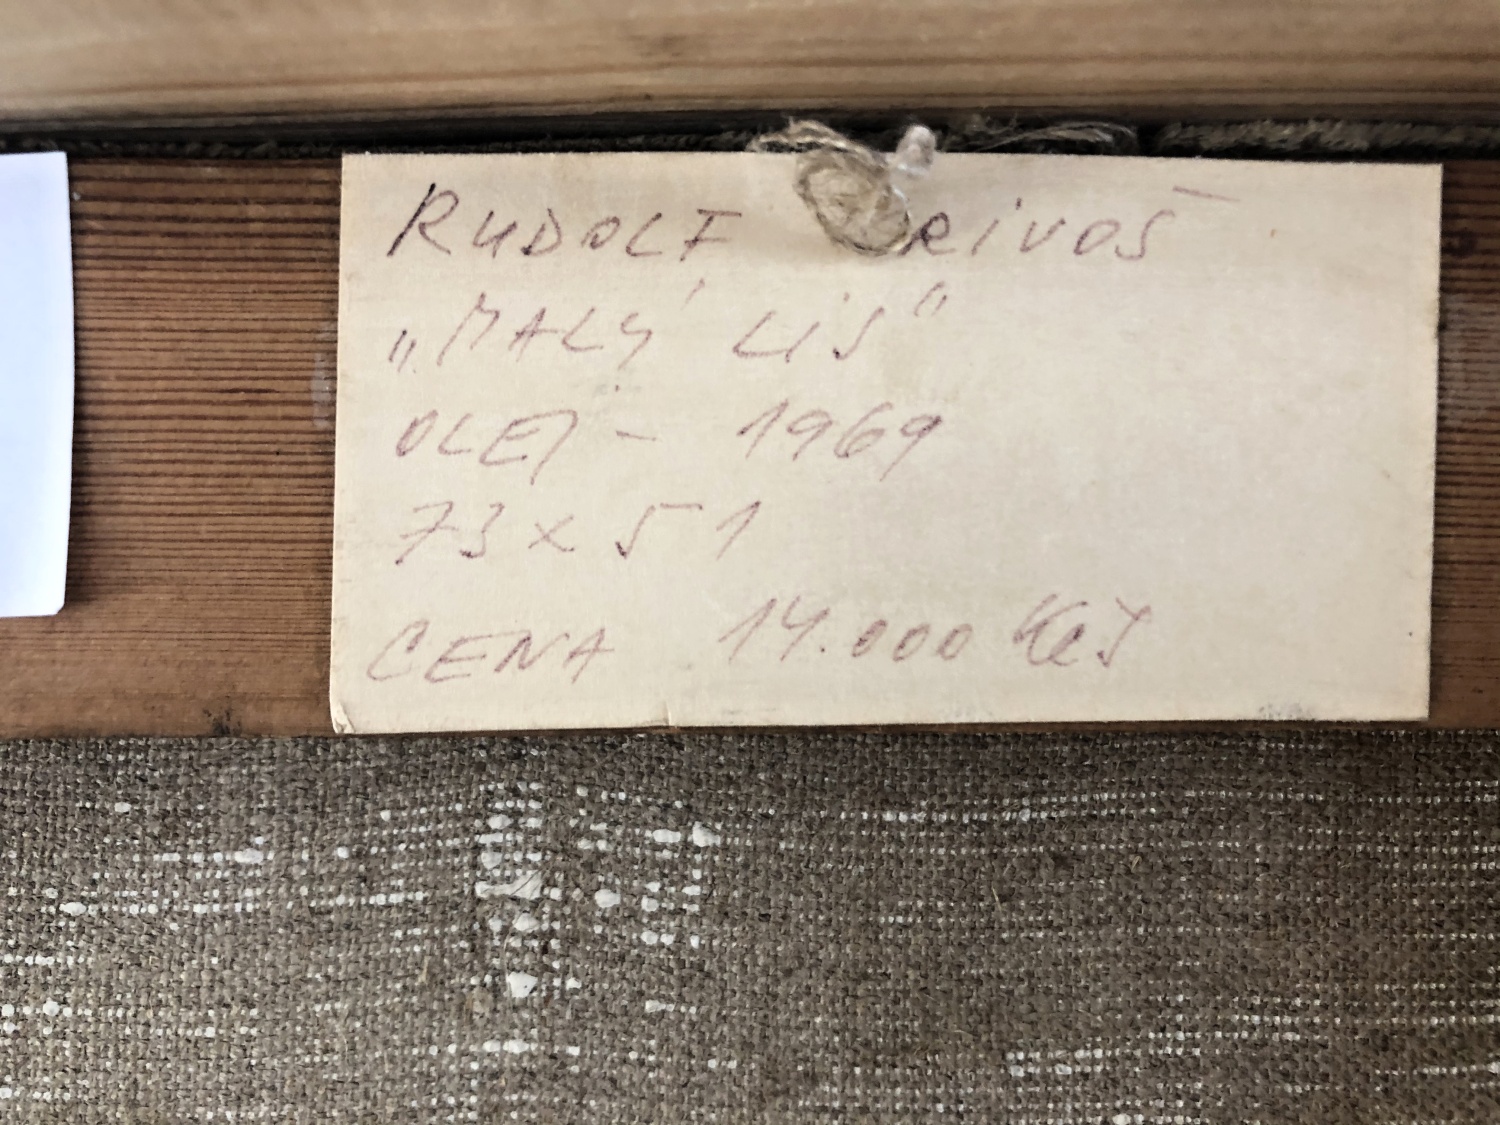 RUDOLF RIVOŠ
„MALÝ LIS“
OLEJ - 1969
73 x 51
CENA 14.000 Kčs